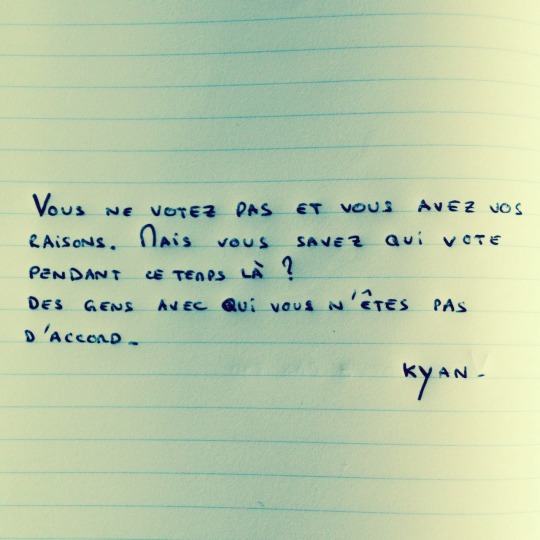 Vous ne votez pas et vous avez vos
raisons. Mais vous savez qui vote
pendant ce temps là ?
Des gens avec qui vous n'êtes pas
d'accord.
KYAN.